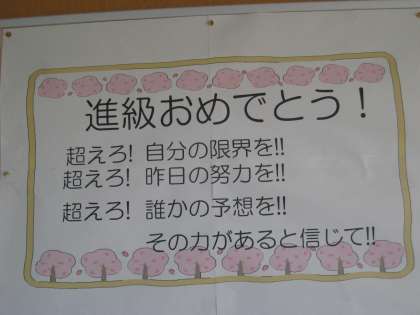 進級おめでとう！
超えろ! 自分の限界を!!
超えろ! 昨日の努力を!!
超えろ! 誰かの予想を!!
その力があると信じて!!